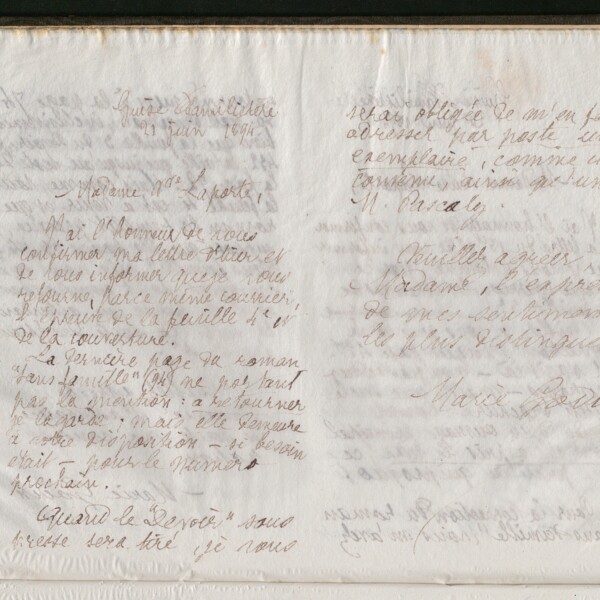 Guise Familistère
21 juin 1894.
Madame Vve Laporte,
J'ai l'honneur de vous
confirmer ma lettre d'hier et
de vous informer que je vous
retourne, par ce même courrier,
l'épreuve de la feuille 4e et
de la couverture.
La dernière page du roman
"Sans famille" (94) ne portant
pas la mention : à retourner
je la garde ; mais elle demeure
à votre disposition - si besoin
était - pour le numéro
prochain.
Quand le "Devoir" sous
presse sera tiré, je vous
serai obligée de m'en f
adresser par poste u
exemplaire, comme
convenu, ainsi qu'un
M. Pascaly.
Veuillez agréer
Madame, l'expre
de mes sentiment
les plus distingué
Marie Godi